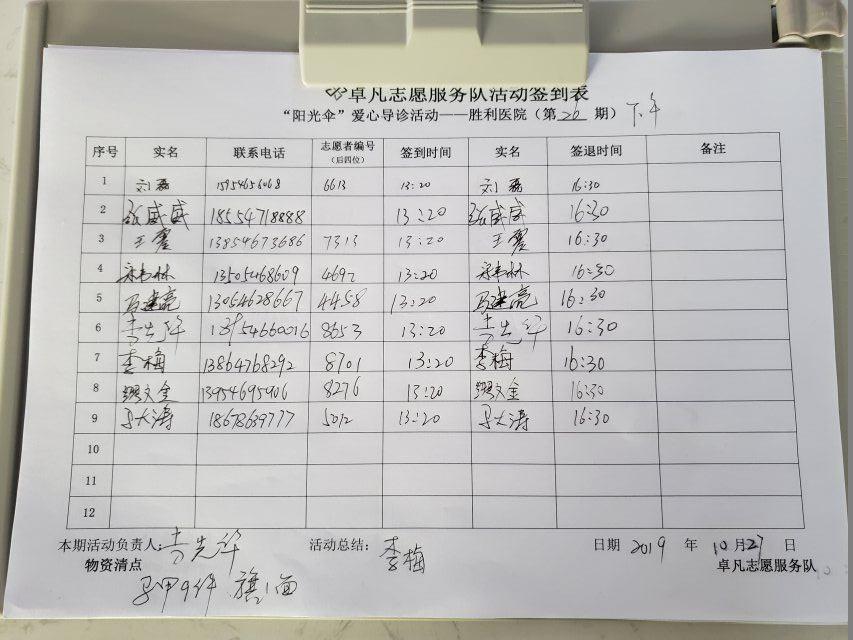 卓凡志愿服务队活动签到表
“阳光伞”爱心导诊活动——胜利医院（第26期）下午
序号 实名 联系电话 志愿者编号（后四位） 签到时间 实名 签退时间 备注
1 刘磊 15954656068 6613 13:20 刘磊 16:30
2 张威威 18554718888 13:20 张威威 16:30
3 王霞 13854673686 7313 13:20 王霞 16:30
4 13505468609 4692 13:20 16:30
5 马建亮 13064628667 4458 13:20 马建亮 16:30
6 李先华 13954660016 8653 13:20 李先华 16:30
7 李梅 13864768292 8701 13:20 李梅 16:30
8 缪文金 13954695906 8276 13:20 缪文金 16:30
9 大涛 18678639777 5012 13:20 大涛 16:30
10
11
12
本期活动负责人: 李先华 活动总结: 李梅 日期 2019 年 10月27日
物资清点 卓凡志愿服务队
马甲9件 旗1面